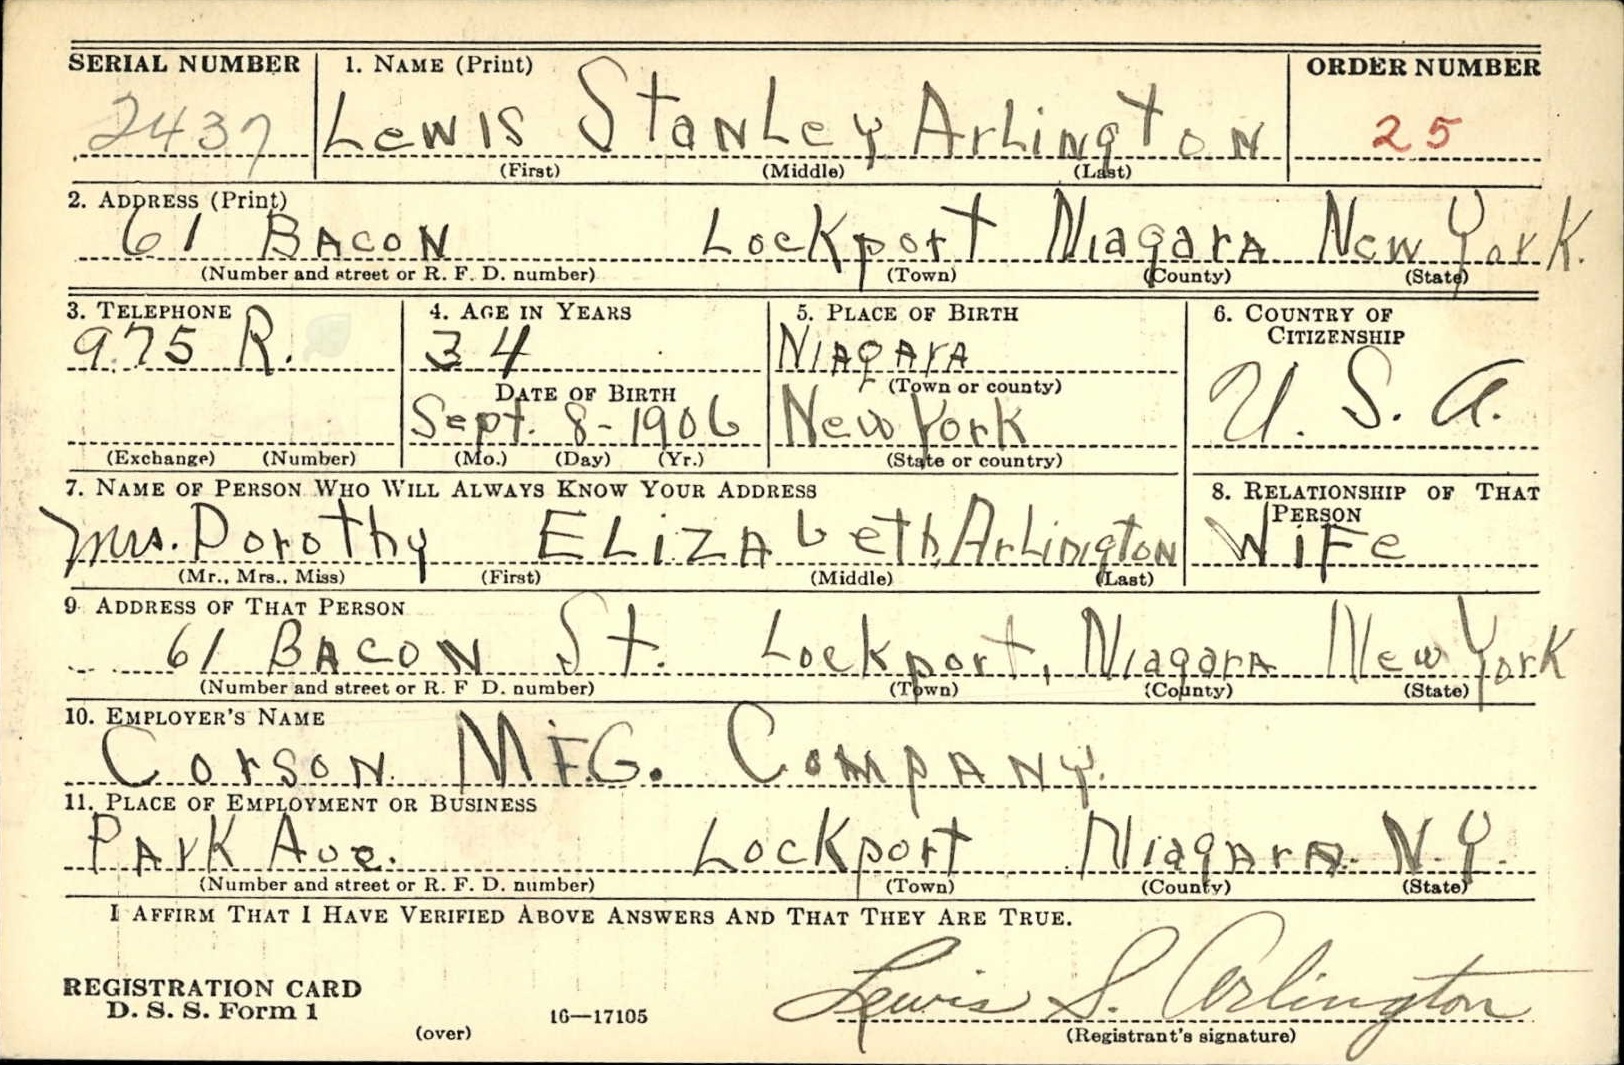 SERIAL NUMBER 1. NAME (Print) ORDER NUMBER
2437 Lewis Stanley Arlington 25
(First) (Middle) (Last)
2. ADDRESS (Print)
61 Bacon Lockport Niagara New York.
(Number and street or R. F. D. number) (Town) (County) (State)
3. TELEPHONE 4. AGE IN YEARS 5. PLACE OF BIRTH 6. COUNTRY OF CITIZENSHIP
975 R. 34 Niagara U. S. A.
(Town or county)
DATE OF BIRTH
Sept. 8-1906 New York
(Exchange) (Number) (Mo.) (Day) (Yr.) (State or country)
7. NAME OF PERSON WHO WILL ALWAYS KNOW YOUR ADDRESS 8. RELATIONSHIP OF THAT PERSON
Mrs. Dorothy Elizabeth Arlington Wife
(Mr., Mrs., Miss) (First) (Middle) (Last)
9 ADDRESS OF THAT PERSON
61 Bacon St. Lockport, Niagara New York
(Number and street or R. F D. number) (Town) (County) (State)
10. EMPLOYER'S NAME
Corson MFG. Company.
11. PLACE OF EMPLOYMENT OR BUSINESS
Park Ave. Lockport Niagara. N.Y.
(Number and street or R. F. D. number) (Town) (County) (State)
I AFFIRM THAT I HAVE VERIFIED ABOVE ANSWERS AND THAT THEY ARE TRUE.
REGISTRATION CARD
D. S. S. Form 1 16—17105 Lewis S. Arlington
(over) (Registrant's signature)